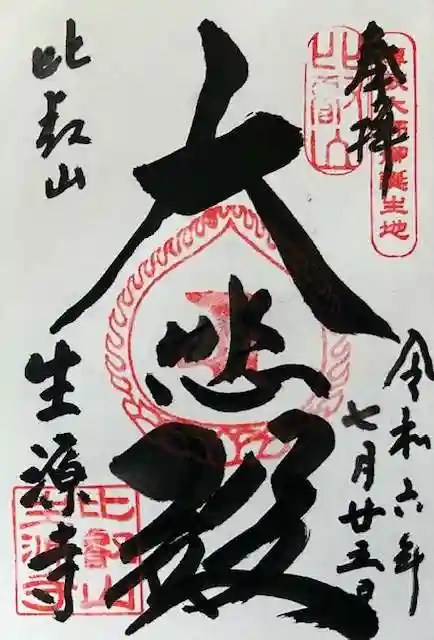 奉拝
傳教大師御誕生地
比叡山
令和六年
七月廿五日
大悲殿
比叡山
生源寺
比叡山
生源寺